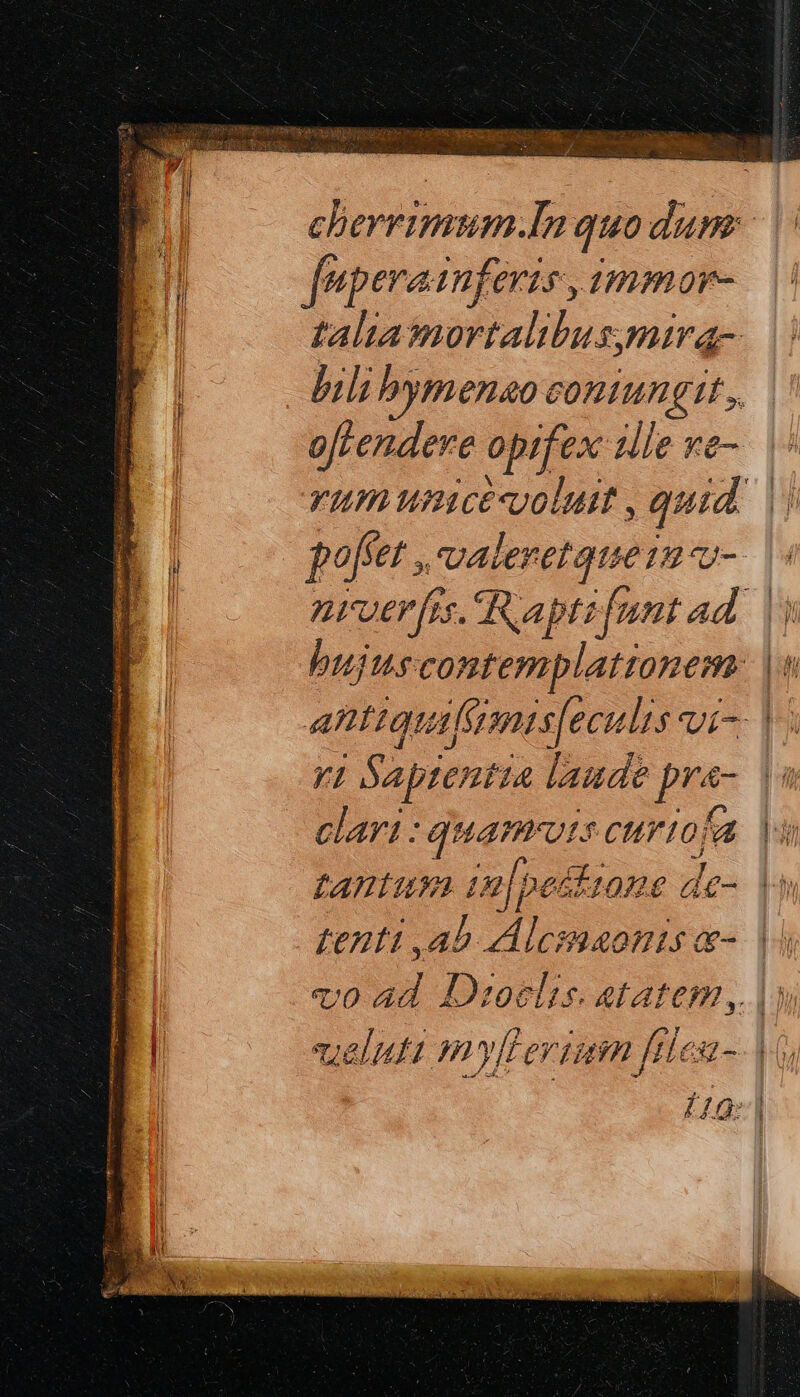 cherrimum. In quo dum
ſuperainferis, immor-
talia mortalibus, mira-
bili hymenæo coniungit,
oſtendere opifex ille re-
rum unicè voluit, quid
poſſet, valeretque in v-
niverſis. Rapti ſunt ad
hujus contemplationem
antiquiſſimis ſeculis vi-
ri Sapientiæ laude præ-
clari: quamvis curioſa
tantum inſpectione de-
tenti, ab Alcmæonis æ-
vo ad Dioclis. ætatem,
veluti myſterium ſilen-
tio